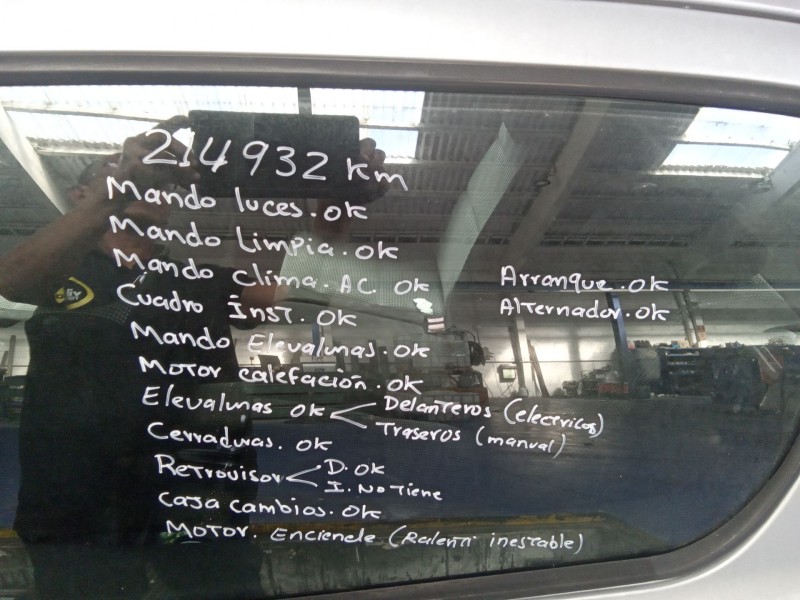 214932 km
Mando luces. OK
Mando Limpia. OK
Mando clima. AC OK
Cuadro Inst. OK
Mando Elevalunas. OK
Motor calefación. OK
Elevalunas OK < Delanteros (electricos)
Traseros (manual)
Cerraduras. OK
Retrovisor < D. OK
I. No Tiene
Caja cambios. OK
Motor. Enciende (Ralenti inestable)
Arranque. OK
Alternador. OK